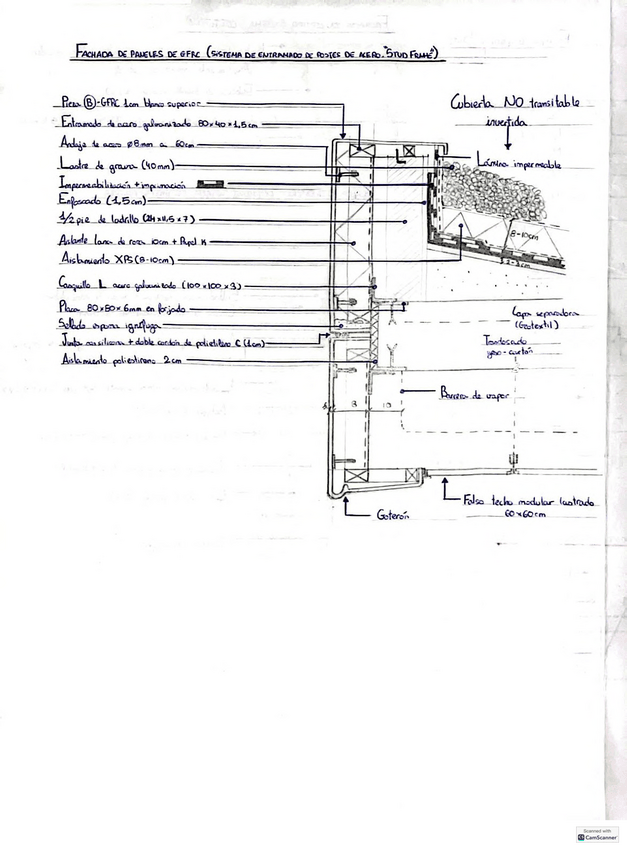 FACHADA DE PANELES DE GFRC (SISTEMA DE ENTRAMADO DE POSTES DE ACERO. "STUD FRAME")
Pieza B - GFRC 1cm blanco superior
Cubierta NO transitable
invertida
Entramado de acero galvanizado 80x40x1,5cm
Anclaje de acero ø8mm a 60cm
Lámina impermeable
Lastre de grava (40mm)
Impermeabilización + imprimación
Enfoscado (1,5cm)
1/2 pie de ladrillo (24x11,5x7)
8-10cm
Aislante lana de roca 10cm + Papel K
Aislamiento XPS (8-10cm)
Casquillo L acero galvanizado (100x100x3)
Placa 80x80x6mm en forjado
Capa separadora
(Geotextil)
Sellado espuma ignífuga
Junta silicona + doble cordón de polietileno C (1cm)
Trasdosado
yeso-cartón
Aislamiento poliestireno 2cm
Barrera de vapor
8 10
Falso techo modular lastrado
60x60cm
Goterón
Scanned with
CamScanner